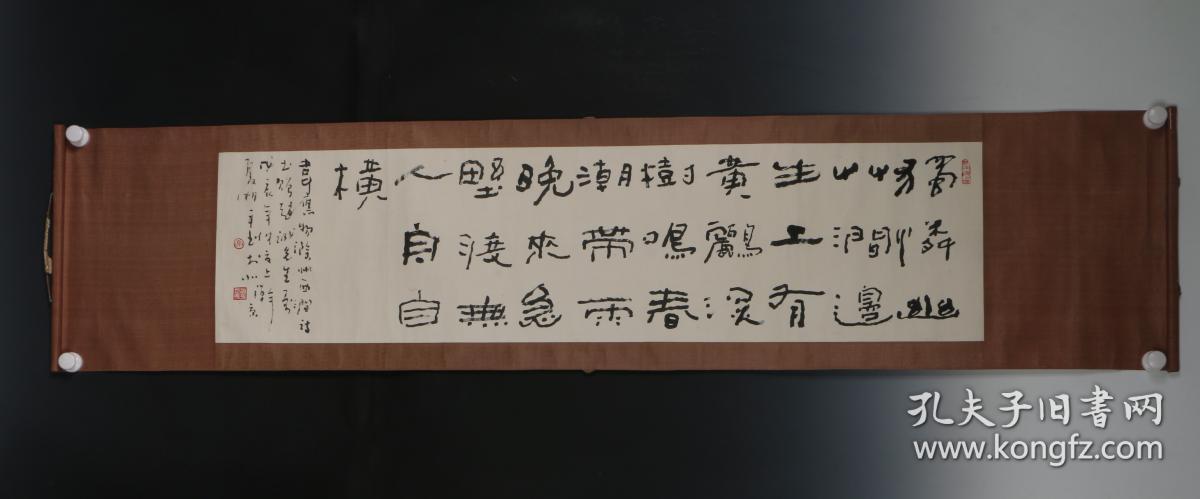 獨憐幽
艸澗邊
生上有
黃鸝深
樹鳴春
潮帶雨
晚來急
野渡無
人舟自
橫
韋應物滁州西澗詩
先生
戊辰年
夏湘平書於北京
孔夫子旧书网
www.kongfz.com